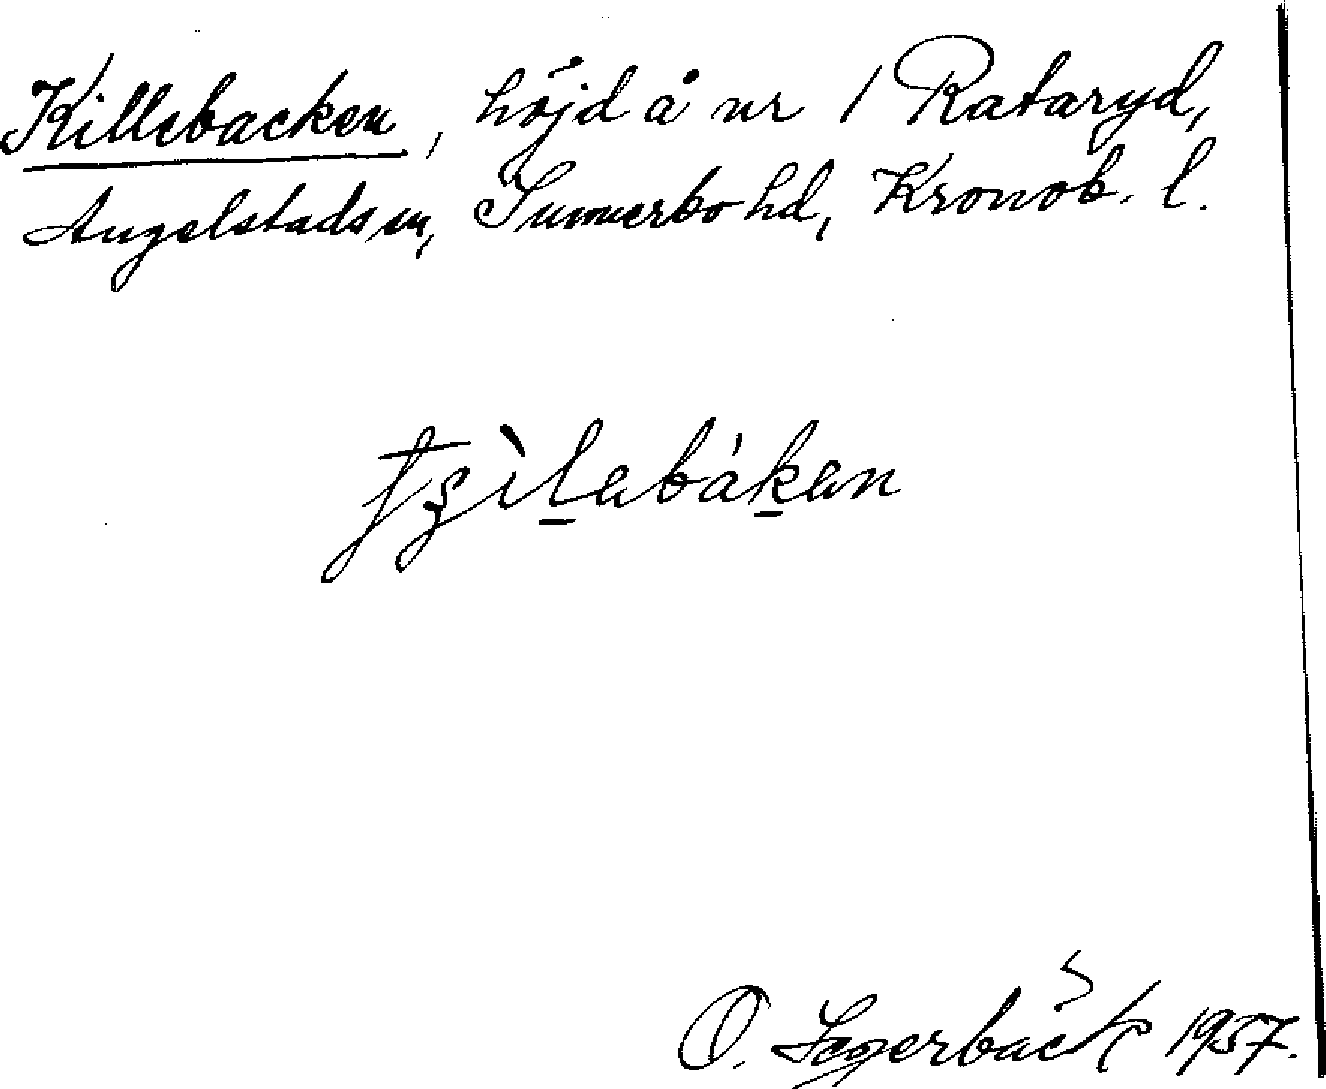 Killebacken, höjd å nr 1 Rataryd,
Angelstads sn, Sunnerbo hd, Kronob. l.
O. Segerbäck 1957.